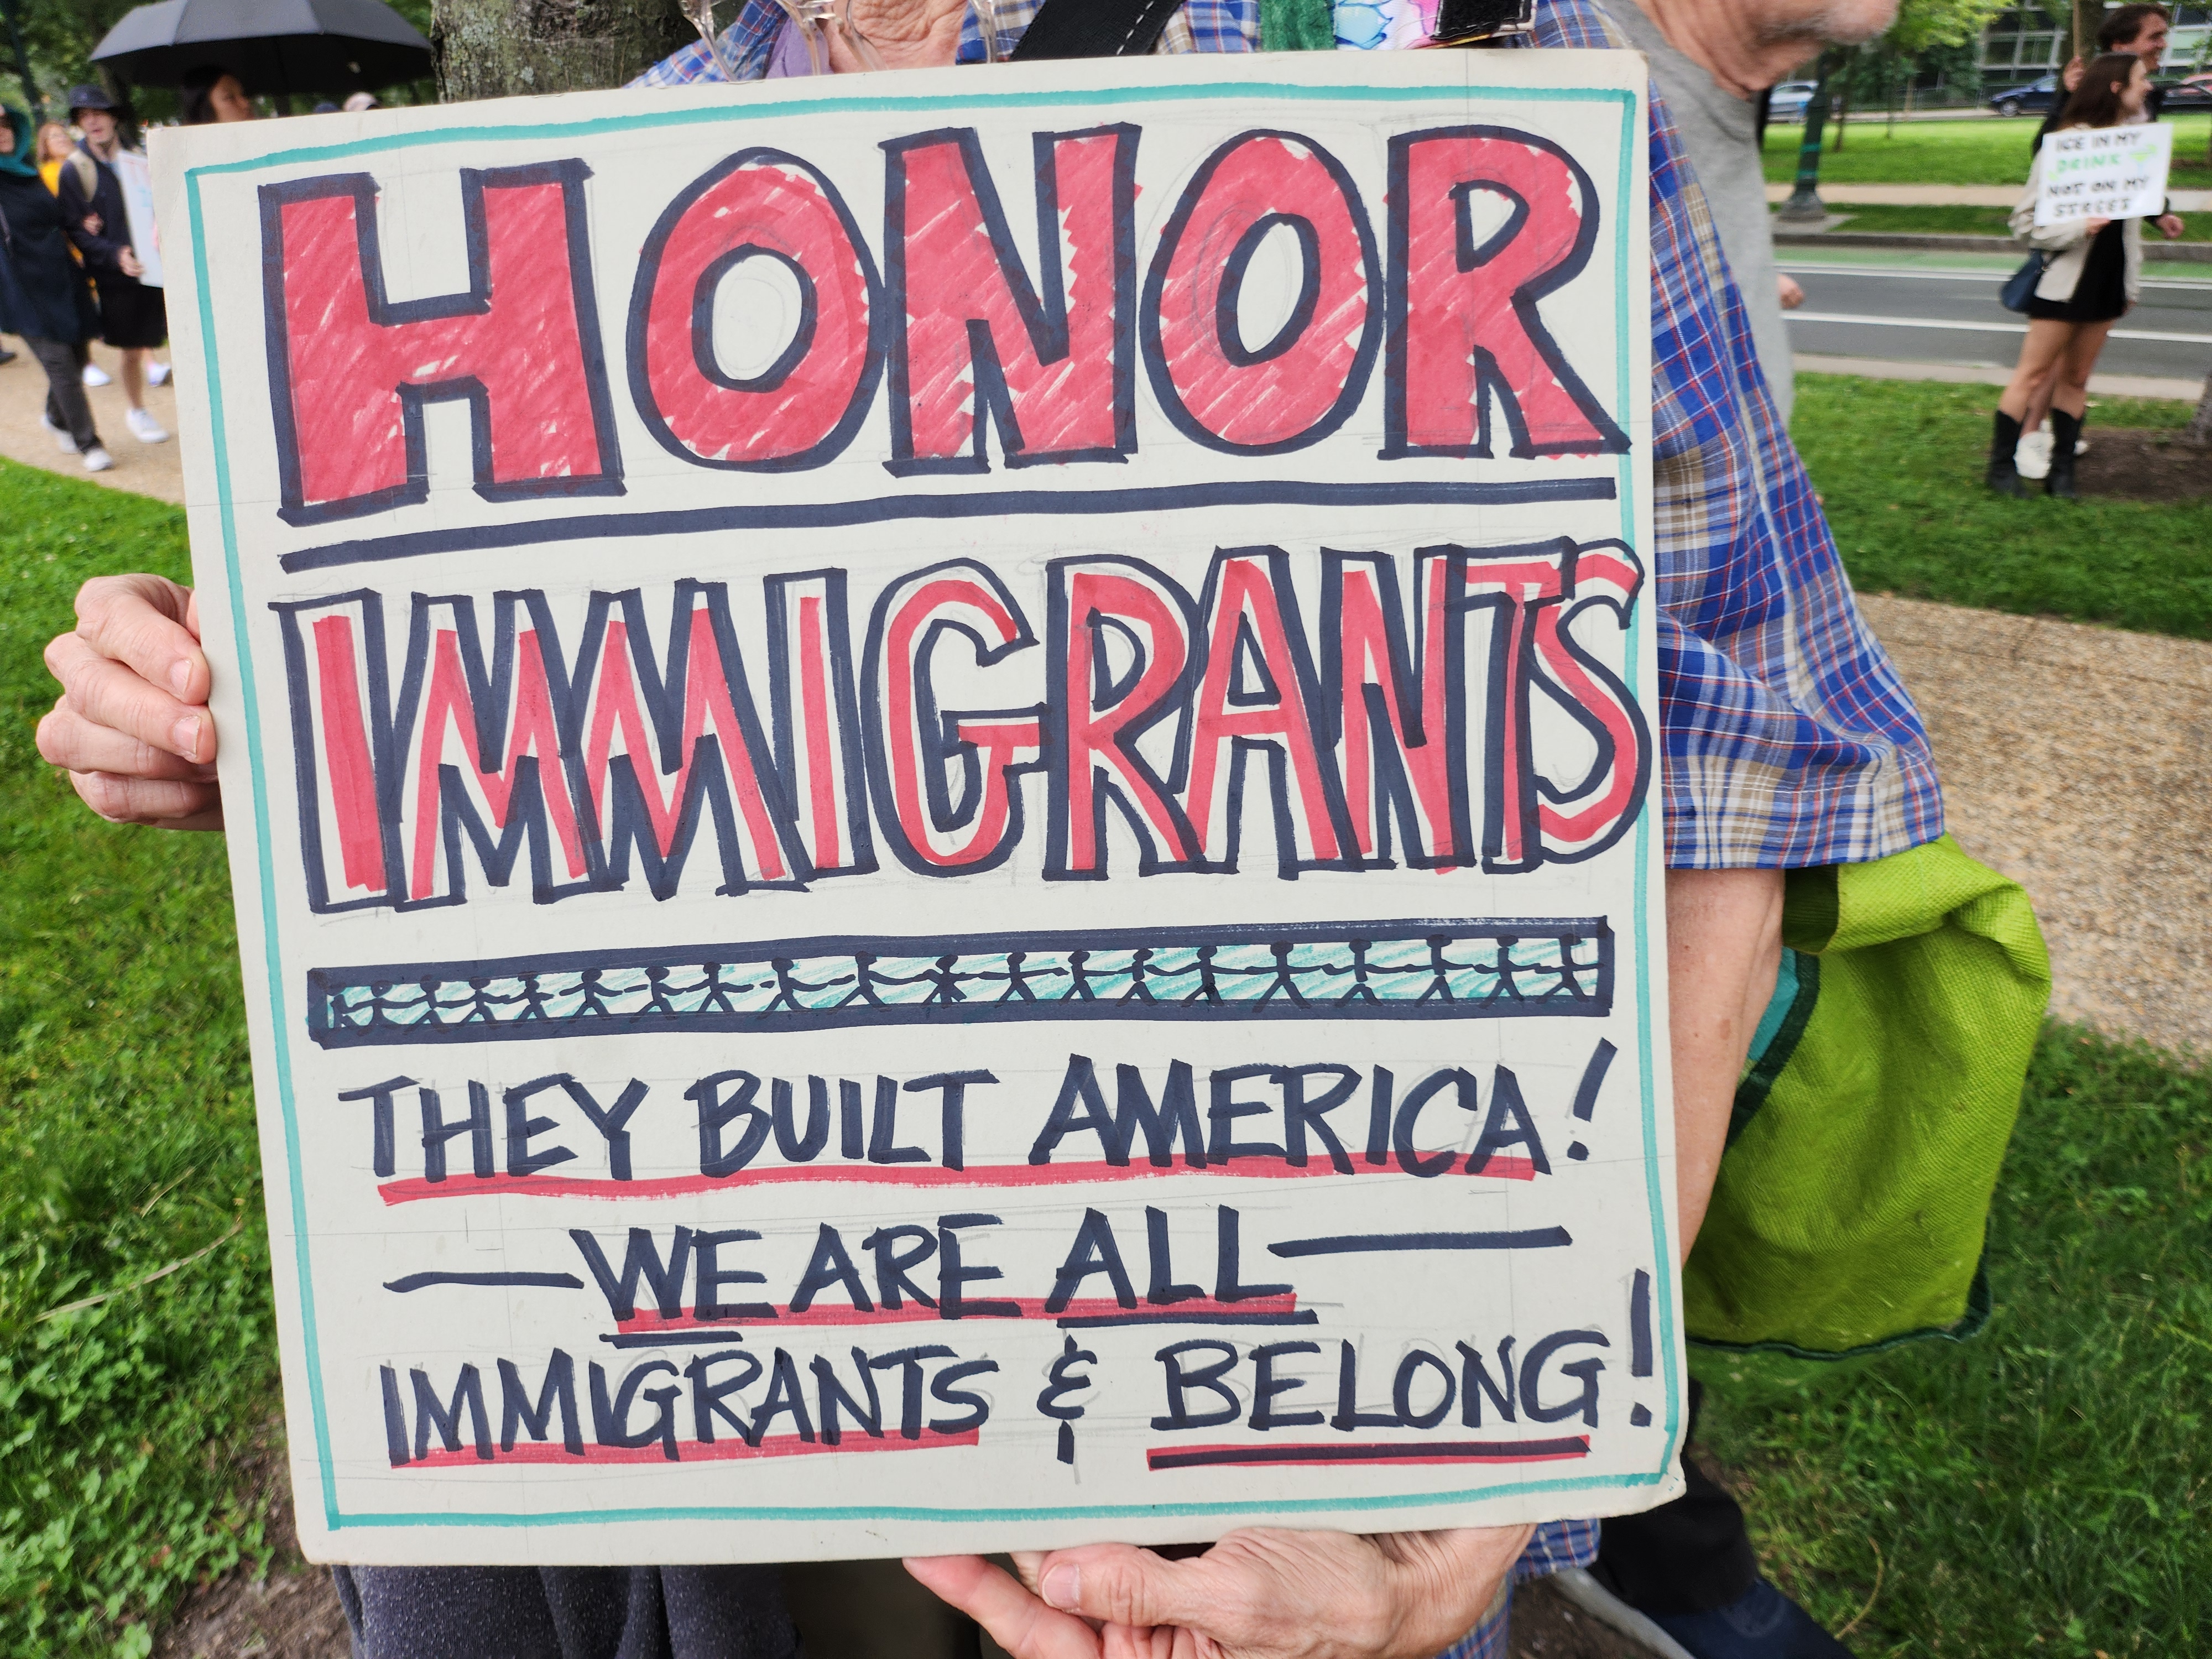 HONOR
IMMIGRANTS
THEY BUILT AMERICA!
— WE ARE ALL —
IMMIGRANTS & BELONG!
ICE IN MY
DRINK
NOT ON MY
STREET